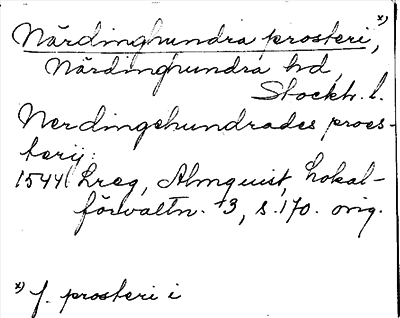 Närdinghundra prosteri, x)
Närdinghundra hd,
Stockh. l.
Nerdingehundrades proes-
terij:
1544 Lreg, Almquist, Lokal-
förvaltn. 3, s. 170. orig.
x) f. prosteri i